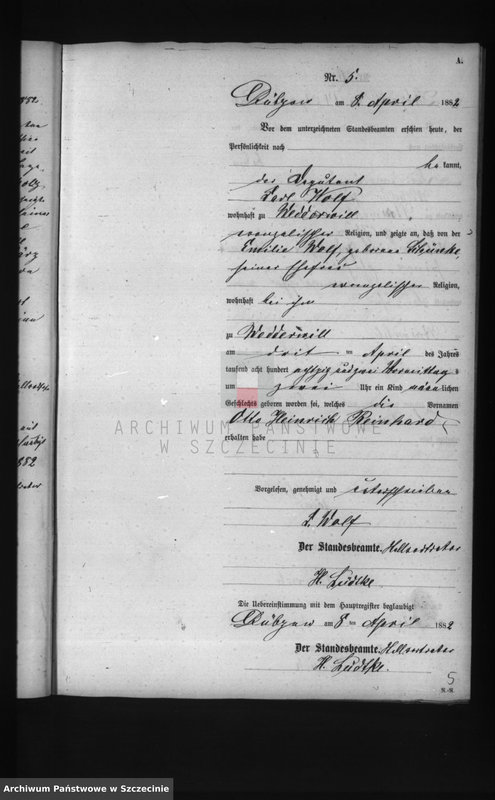 A.
Nr. 5.
am 8. April 1882
Vor dem unterzeichneten Standesbeamten erschien heute, der
Persönlichkeit nach
be kannt,
der Deputant
Carl Wolf
wohnhaft zu Wedderwill
evangelischer Religion, und zeigte an, daß von der
Emilie Wolf, geborene
seiner Ehefrau
evangelischer Religion,
wohnhaft bei ihm
zu Wedderwill
am dritten April des Jahres
tausend acht hundert achtzig und zwei Vormittags
um zwei Uhr ein Kind männlichen
Geschlechts geboren worden sei, welches die Vornamen
Otto Heinrich Reinhard
erhalten habe
Vorgelesen, genehmigt und unterschrieben
C. Wolf
Der Standesbeamte.
H. Lüdtke
Die Uebereinstimmung mit dem Hauptregister beglaubigt
am 8 ten April 1882
Der Standesbeamte.
H. Lüdtke.
5
ARCHIWUM PAŃSTWOWE
W SZCZECINIE
1882
Archiwum Państwowe w Szczecinie